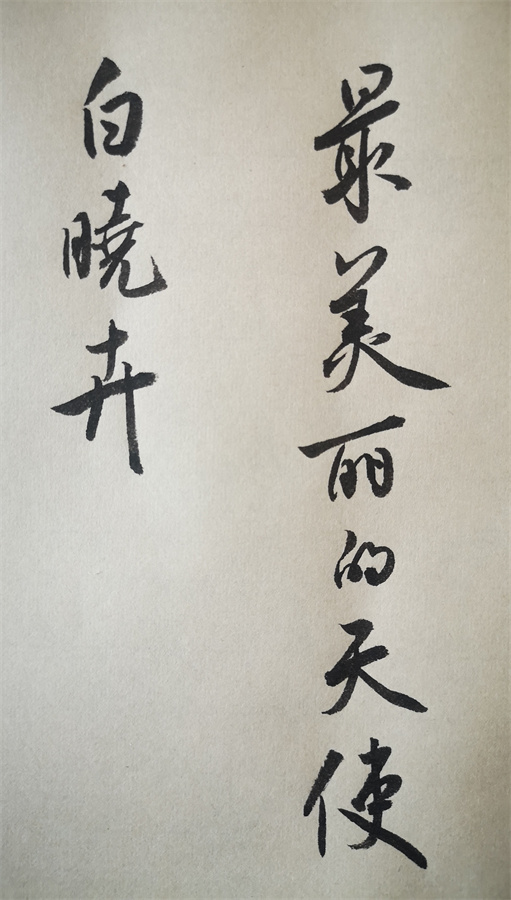 最美丽的天使
白曉卉